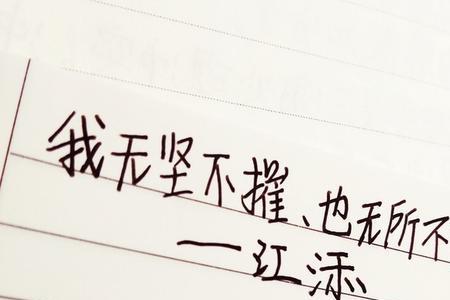 我无坚不摧、也无所不
一江添